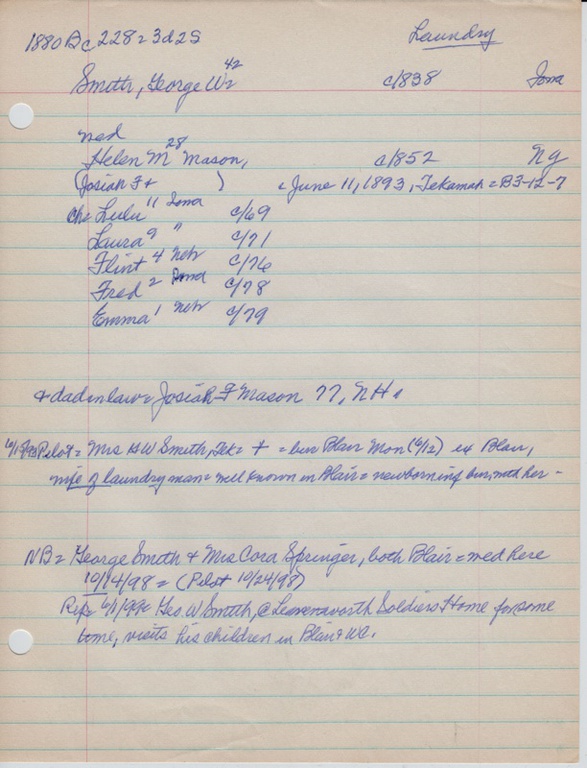 1880 Bc 228=3d2S Laundry
Smith, George W= 42 c/1838 Iowa
med
Helen M 28 Mason, c/1852 Ny
(Josiah F + ) = June 11, 1893, Tekamah = B3-12-7
ch= Lulu 11 Iowa c/69
Laura 9 " c/71
Flint 4 Neb c/76
Fred 2 Iowa c/78
Emma 1 Neb c/79
+ dadinlaw= Josiah F Mason 77, NH.
Pilot= Mrs GW Smith, Tek= + = bur Blair Mon (6/12) ex Blair,
wife of laundry man= well known in Blair= newborning bur with her -
NB= George Smith + Mrs Cora Springer, both Blair= med here
10/14/98= (Pilot 10/24/98)
Rep= 6/1/99= Geo W Smith, @ Leavenworth Soldiers Home for some
time, visits his children in Blair + WC.